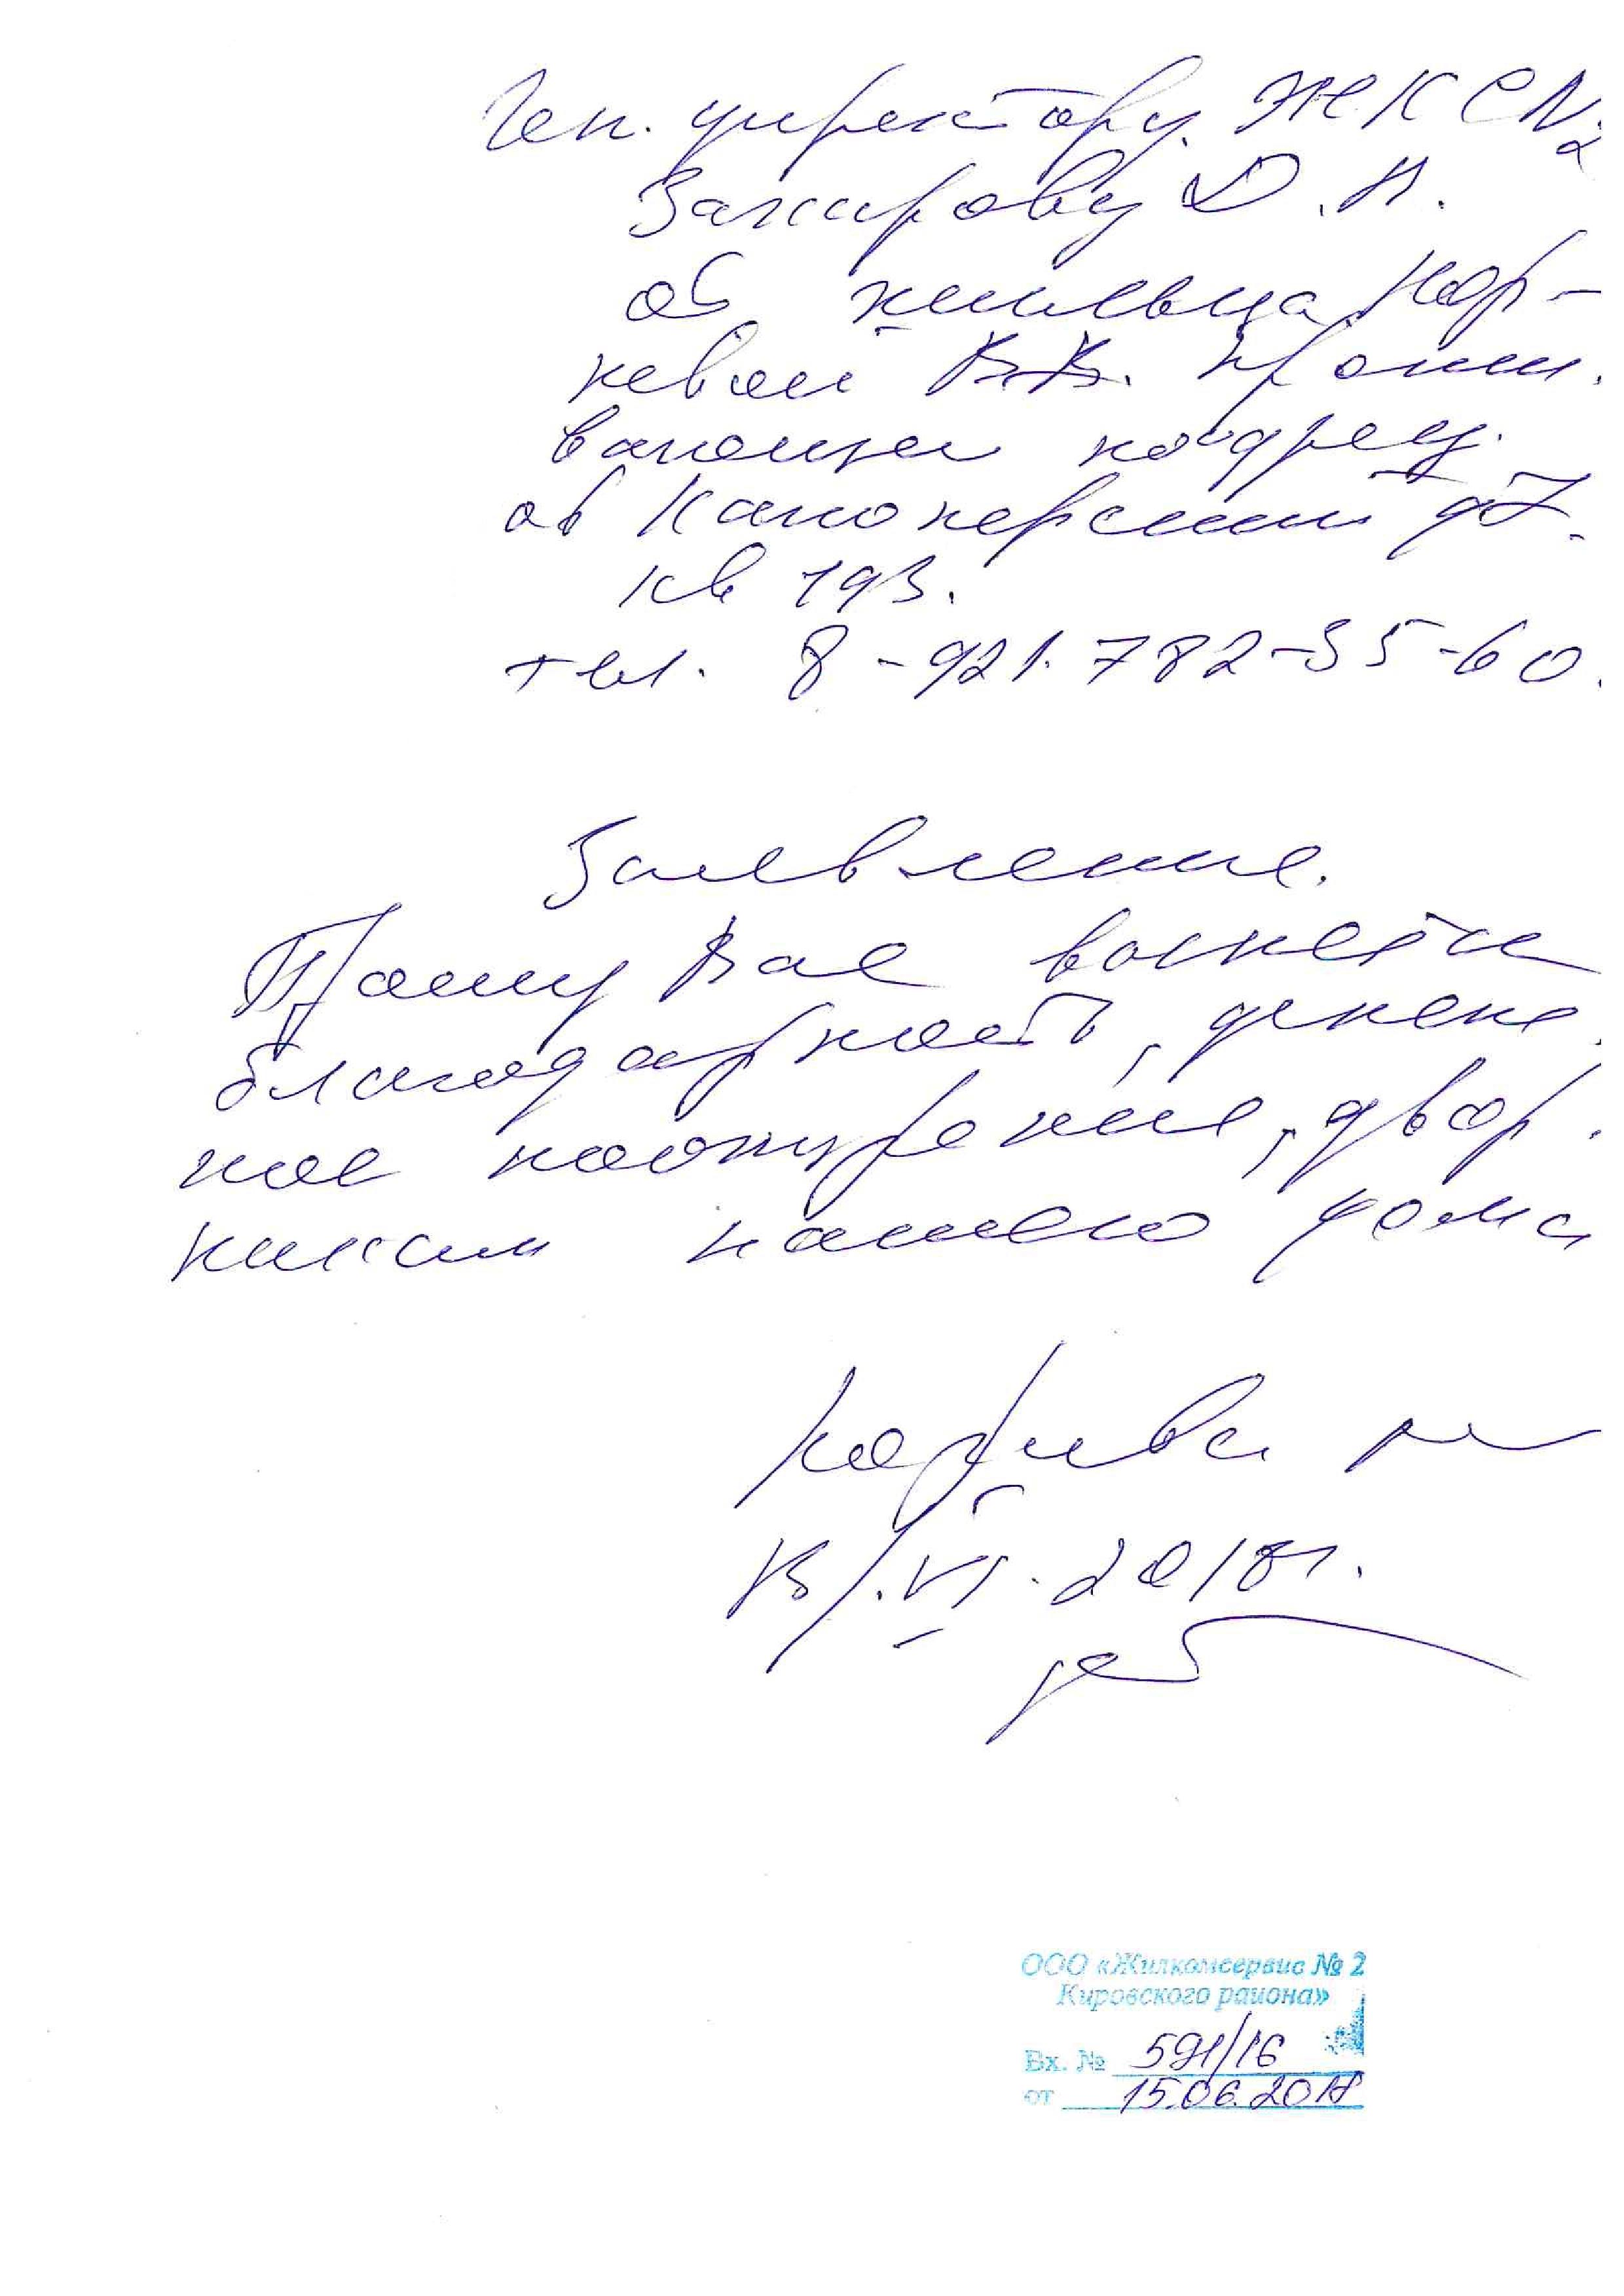 Ген. директору ЖКС №2
Закирову Д. Н.
от жильца Кор-
невой В.В. прожи.
вающей по адресу.
ов Канонерский д7.
кв 193.
тел. 8-921.782-35-60.
Заявление.
Прошу Вас вынести
благодарность, денеж
ное поощрение, двор.
никам нашего дома
VI. 2018г.
ООО «Жилкомсервис № 2
Кировского района»
Вх. № 591/16
от 15.06.2018